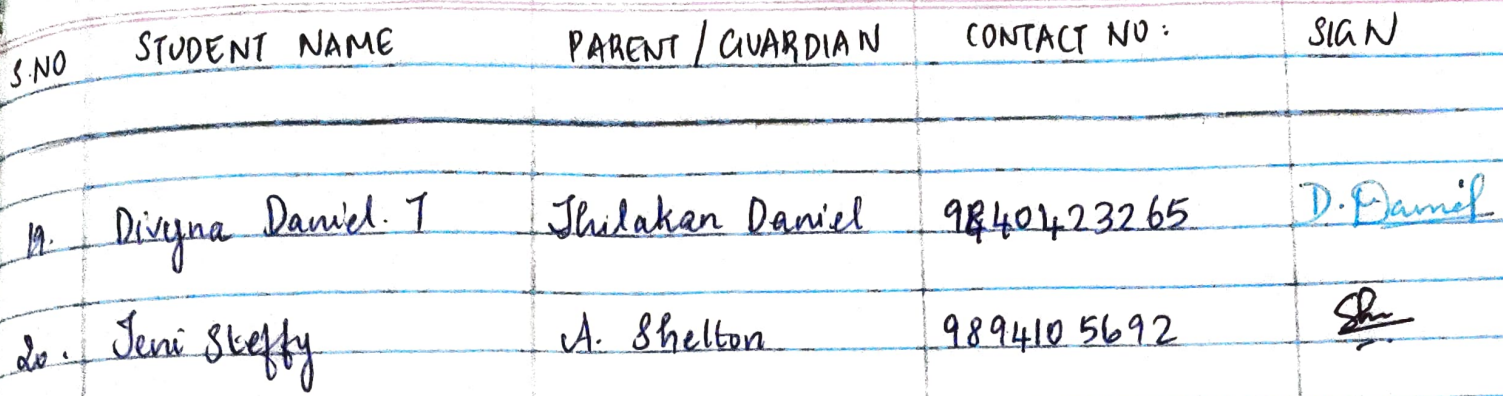 S.NO STUDENT NAME PARENT / GUARDIAN CONTACT NO: SIGN
19. Divyna Daniel. T Thilakan Daniel 9840423265 D. Daniel
20. Jeni Steffy A. Shelton 9894105692